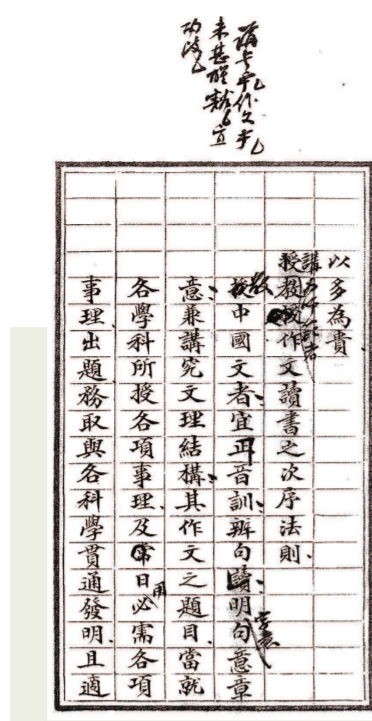 未甚醒豁宜
酌改
以多為貴
作文讀書之次序法則.
教中國文者、宜正音訓、辨句讀、明句意章
意、兼講究文理結構、其作文之題目、當就
各學科所授各項事理、及日用必需各項
事理出題務取與各科學貫通發明、且適